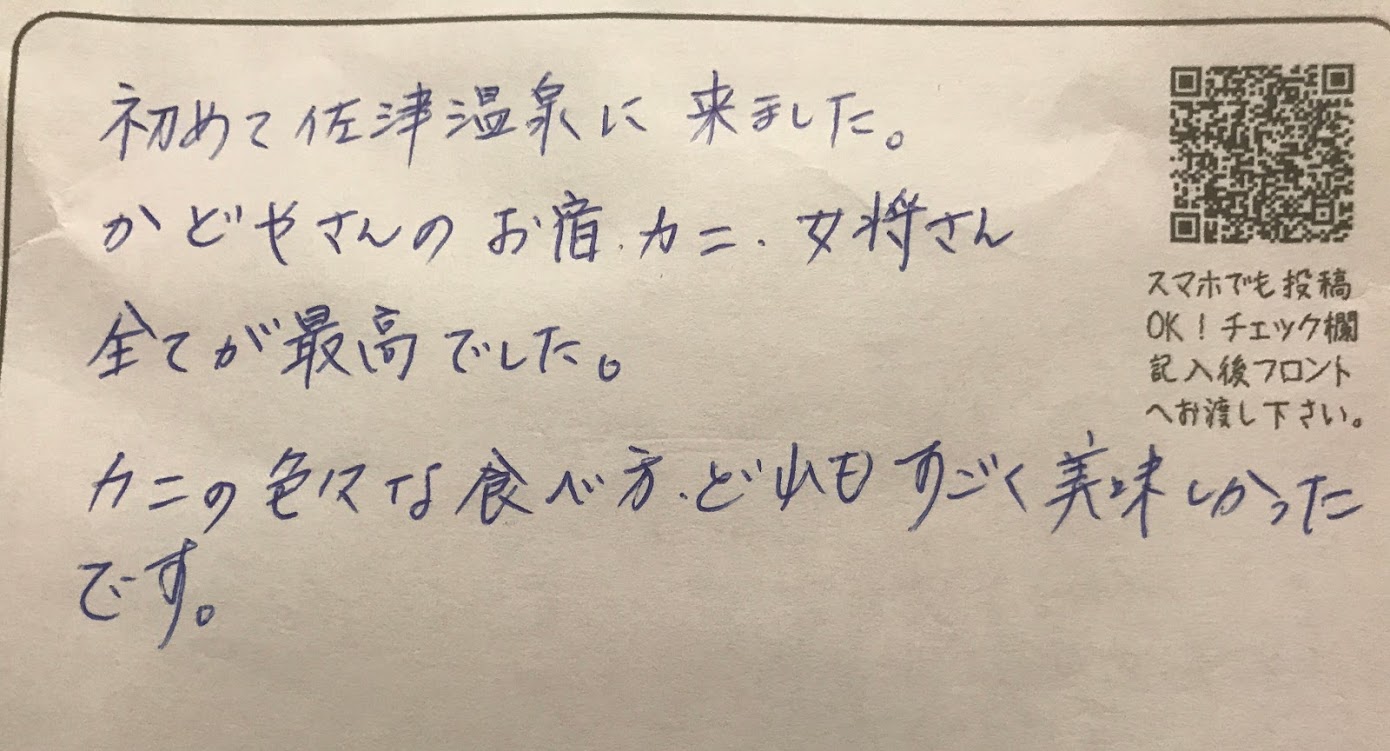 初めて佐津温泉に来ました。
かどやさんのお宿.カニ.女将さん
全てが最高でした。
カニの色々な食べ方.どれもすごく美味しかった
です。
スマホでも投稿
OK!チェック欄
記入後フロント
へお渡し下さい。